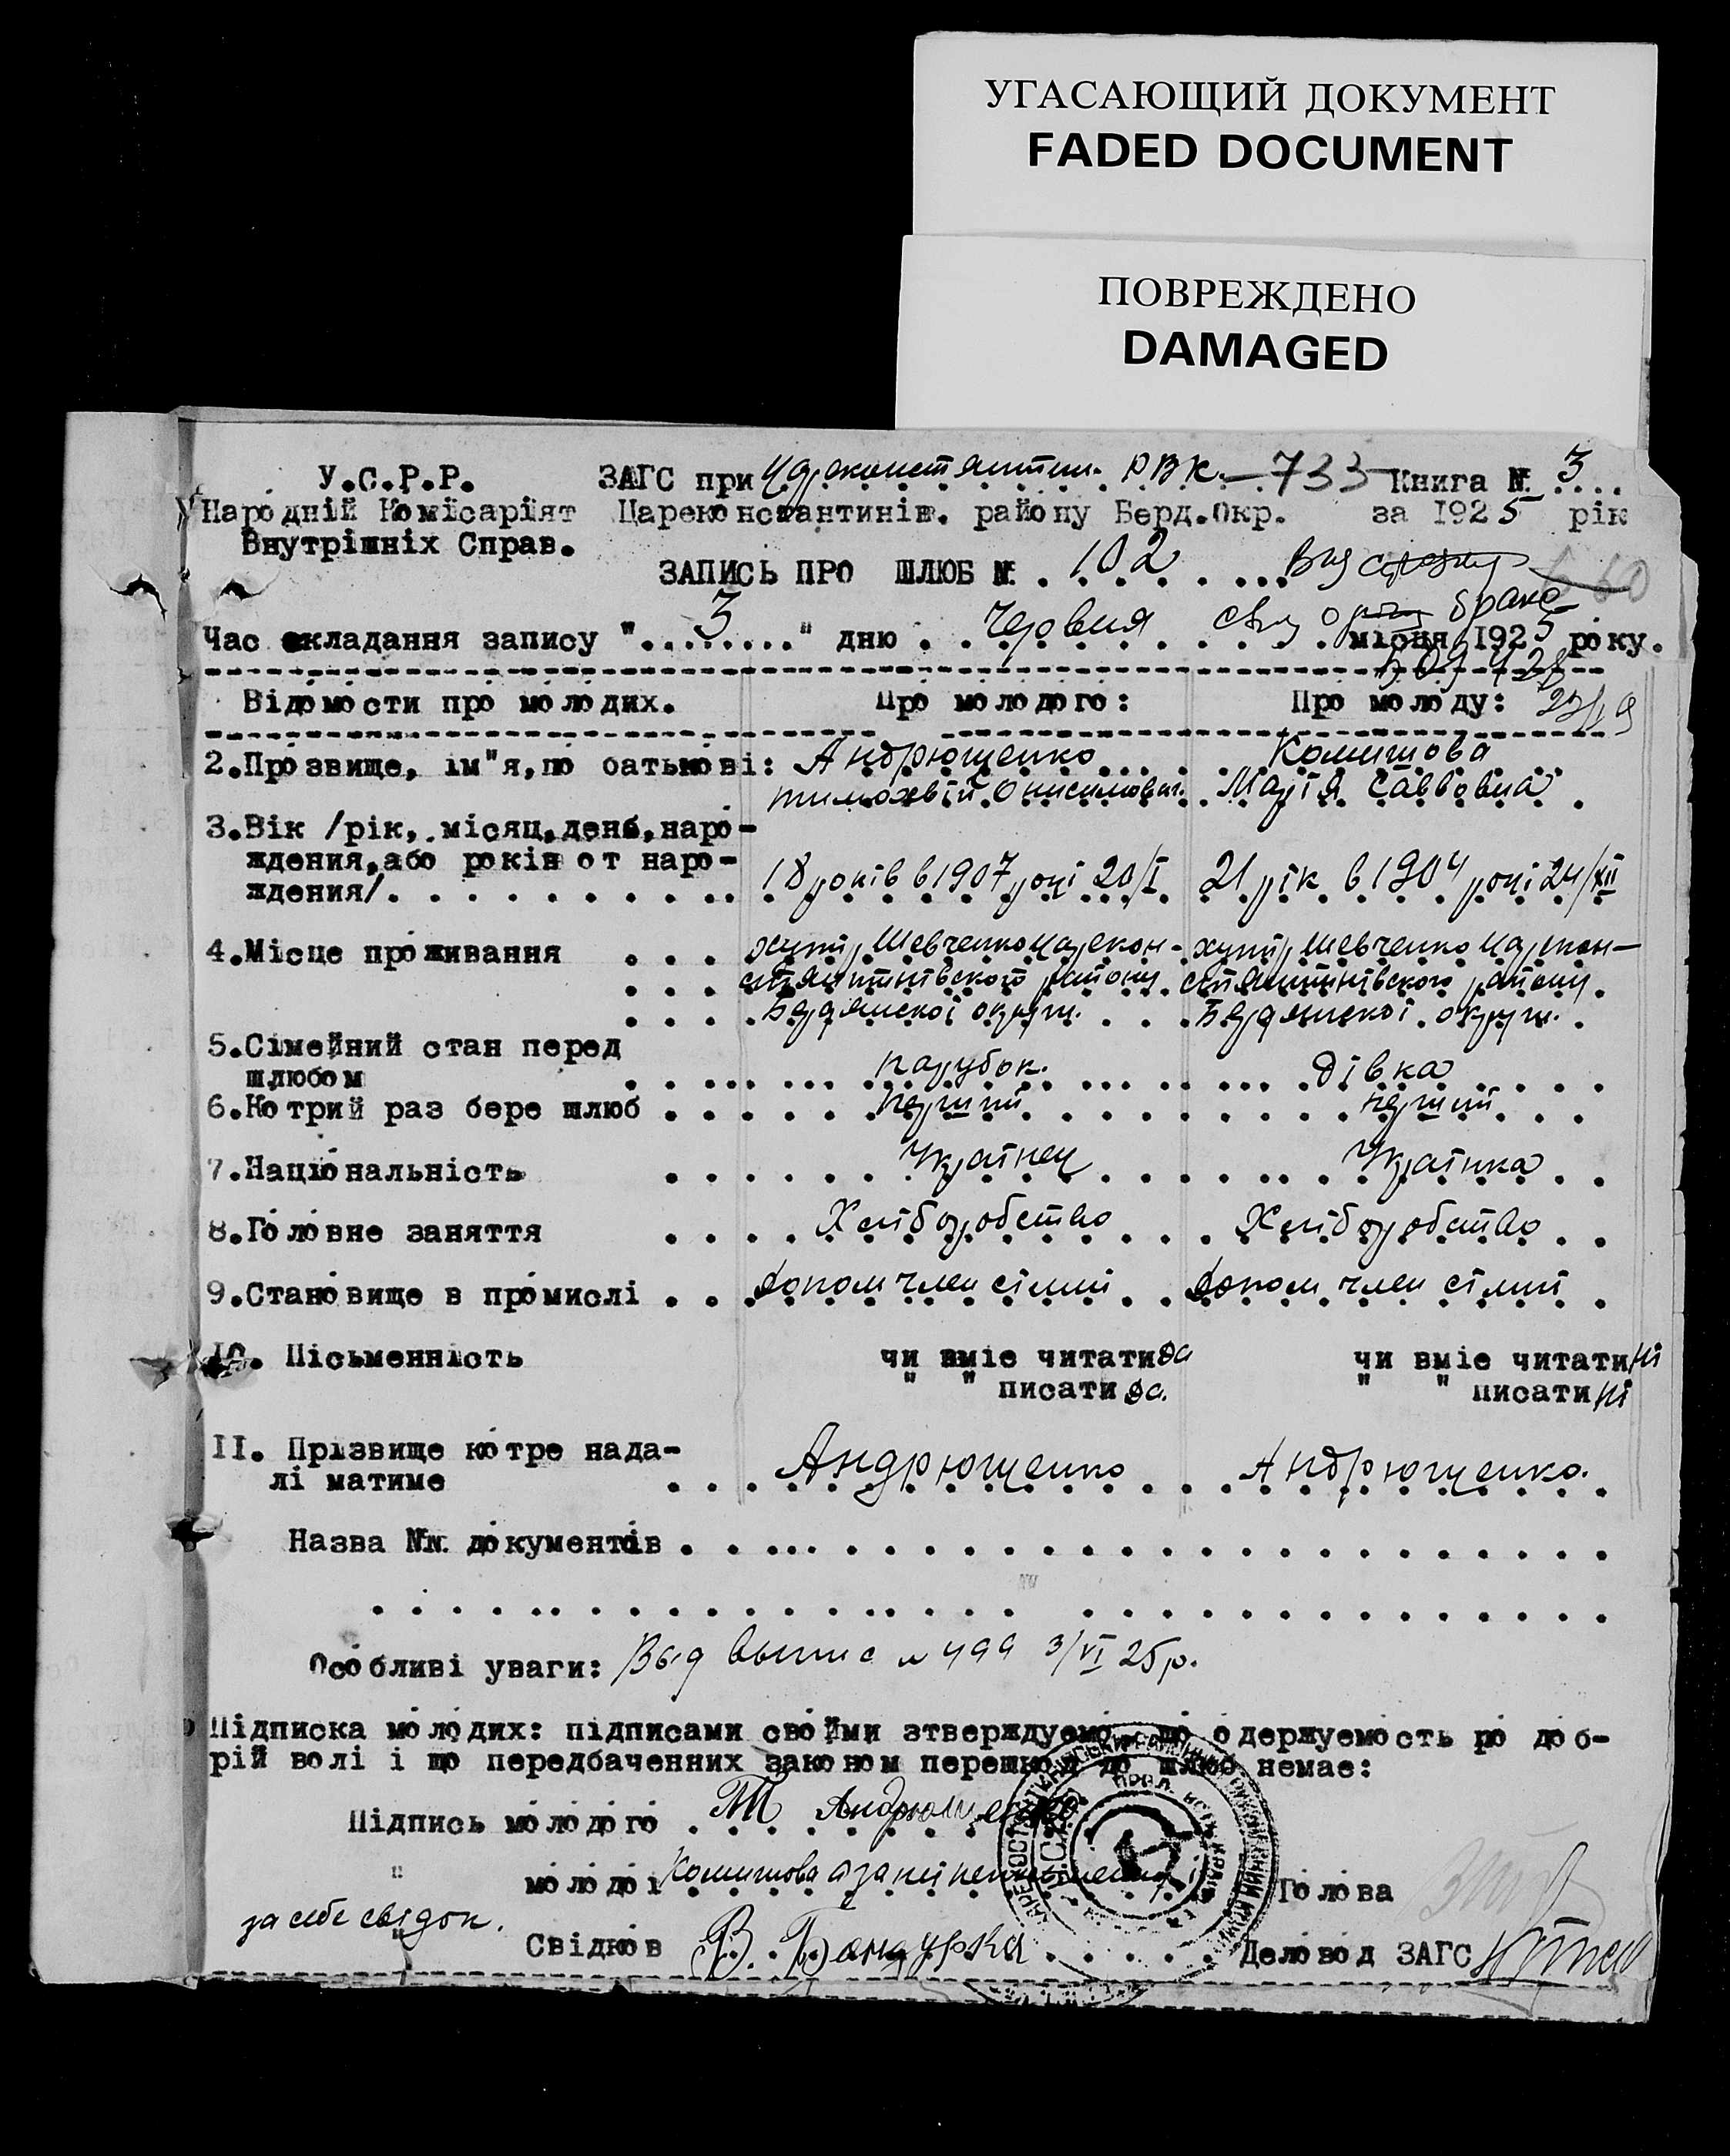 УГАСАЮЩИЙ ДОКУМЕНТ
FADED DOCUMENT
ПОВРЕЖДЕНО
DAMAGED
У.С.Р.Р. ЗАГС при Цареконстянтин. РВК.–733 Книга № 3
Народній Комісаріят Цареконстантинів. району Берд.Окр. за 1925 рік
Внутрішніх Справ.
ЗАПИСЬ ПРО ШЛЮБ №. 102
брака
Час складання запису "3" дню Червня місяця 1925 року.
Відомости про молодих. Про молодого: Про молоду:
2.Прозвище, ім"я,по батькові: Андрющенко Комишова
Тимохвій Онисимович. Марія Савовна
3.Вік /рік, місяц,день,наро-
ждения,або років от наро-
ждения/. 18 років в 1907 році 20/I 21 рік в 1904 році 24/XII
4.Місце проживання хутір Шевченко Царекон- хутір Шевченко Царекон-
стянтинівского району стянтинівского району
Бердянскої округи. Бердянскої округи.
5.Сімейний стан перед
шлюбом парубок. дівка
6.Котрий раз бере шлюб перший перший
7.Національність Українец Українка
8.Головне заняття Хліборобство Хліборобство
9.Становище в промислі допом член сімиї допом член сімиї
10. Пісьменність чи вміє читати да чи вміє читати ні
" " писати да. " " писати ні
11. Прізвище котре нада-
лі матиме Андрющенко Андрющенко.
Назва №№. документів
Особливі уваги: Выд выпис № 499 3/VI 25р.
Підписка молодих: підписами своїми зтверджуемо, що одержуемость по доб-
рій волі і що передбаченних законом перешкод до шлюб немае:
Підпись молодого Т Андрющенко
" молодої Комишова а за неї неписьменна Голова
за себе свідок.
" Свідків В. Бандурка Деловод ЗАГС